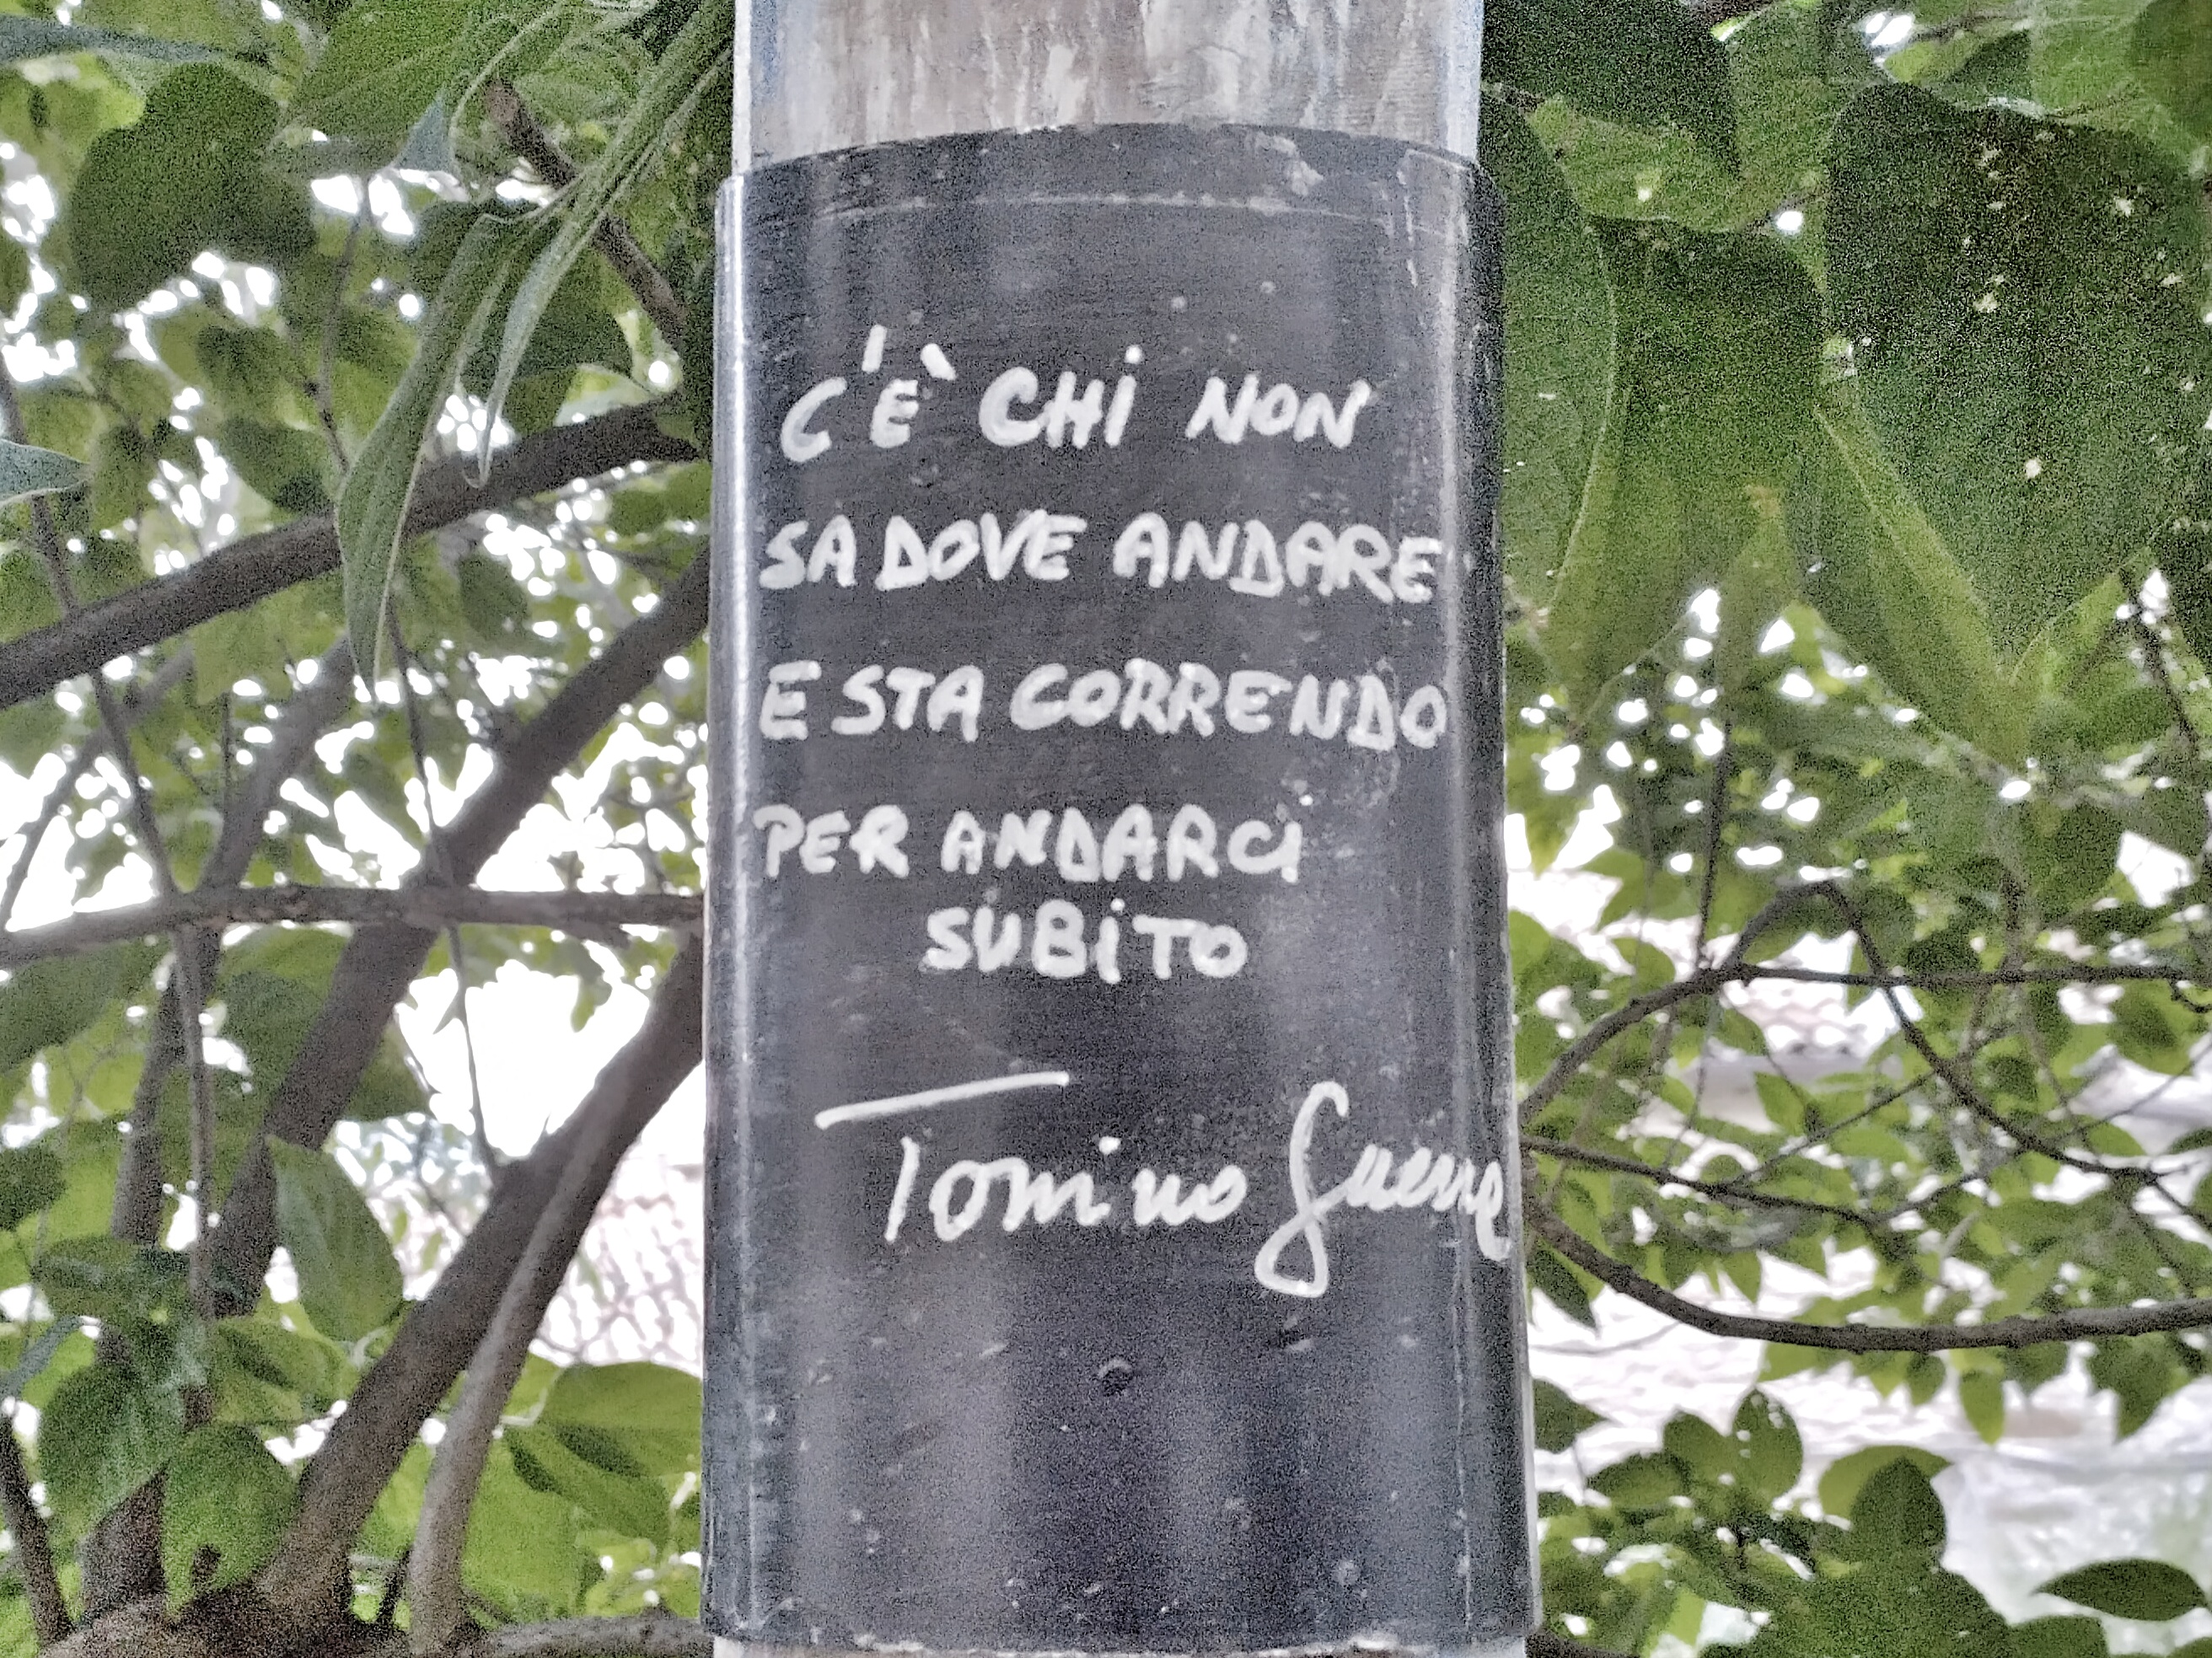 C'È CHi NON
SA DOVE ANDARE
E STA CORRENDO
PER ANDARCi
SUBiTO
Tonino Guerra